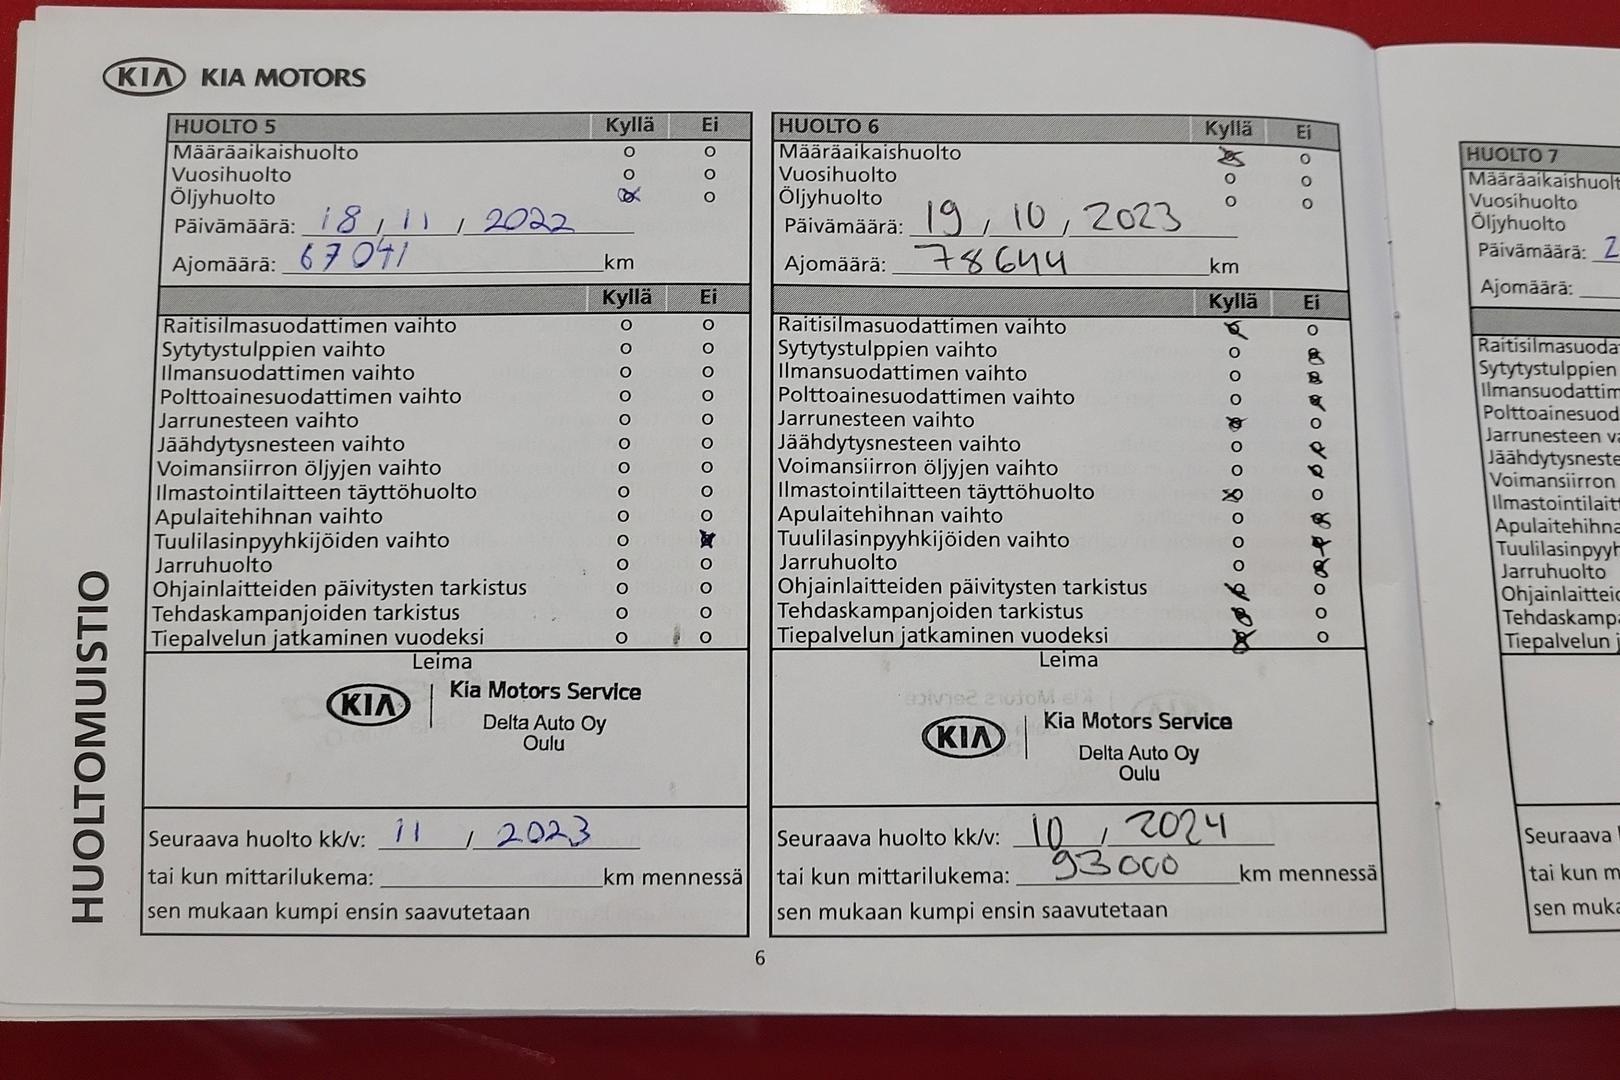 KIA KIA MOTORS
HUOLTO 5 Kyllä Ei
Määräaikaishuolto o o
Vuosihuolto o o
Öljyhuolto o
Päivämäärä: 18 / 11 / 2022
Ajomäärä: 67041 km
Kyllä Ei
Raitisilmasuodattimen vaihto o o
Sytytystulppien vaihto o o
Ilmansuodattimen vaihto o o
Polttoainesuodattimen vaihto o o
Jarrunesteen vaihto o o
Jäähdytysnesteen vaihto o o
Voimansiirron öljyjen vaihto o o
Ilmastointilaitteen täyttöhuolto o o
Apulaitehihnan vaihto o o
Tuulilasinpyyhkijöiden vaihto o
Jarruhuolto o o
Ohjainlaitteiden päivitysten tarkistus o o
Tehdaskampanjoiden tarkistus o o
Tiepalvelun jatkaminen vuodeksi o o
Leima
KIA Kia Motors Service
Delta Auto Oy
Oulu
Seuraava huolto kk/v: 11 / 2023
tai kun mittarilukema: km mennessä
sen mukaan kumpi ensin saavutetaan
HUOLTO 6 Kyllä Ei
Määräaikaishuolto o
Vuosihuolto o o
Öljyhuolto o o
Päivämäärä: 19 / 10 / 2023
Ajomäärä: 78644 km
Kyllä Ei
Raitisilmasuodattimen vaihto o
Sytytystulppien vaihto o
Ilmansuodattimen vaihto o
Polttoainesuodattimen vaihto o
Jarrunesteen vaihto o
Jäähdytysnesteen vaihto o
Voimansiirron öljyjen vaihto o
Ilmastointilaitteen täyttöhuolto o
Apulaitehihnan vaihto o
Tuulilasinpyyhkijöiden vaihto o
Jarruhuolto o
Ohjainlaitteiden päivitysten tarkistus o
Tehdaskampanjoiden tarkistus o
Tiepalvelun jatkaminen vuodeksi o
Leima
KIA Kia Motors Service
Delta Auto Oy
Oulu
Seuraava huolto kk/v: 10 / 2024
tai kun mittarilukema: 93000 km mennessä
sen mukaan kumpi ensin saavutetaan
HUOLTOMUISTIO
6
HUOLTO 7
Vuosihuolto
Öljyhuolto
Päivämäärä: 2
Ajomäärä:
Sytytystulppien
Voimansiirron
Jarruhuolto
Tiepalvelun
Seuraava
tai kun
sen